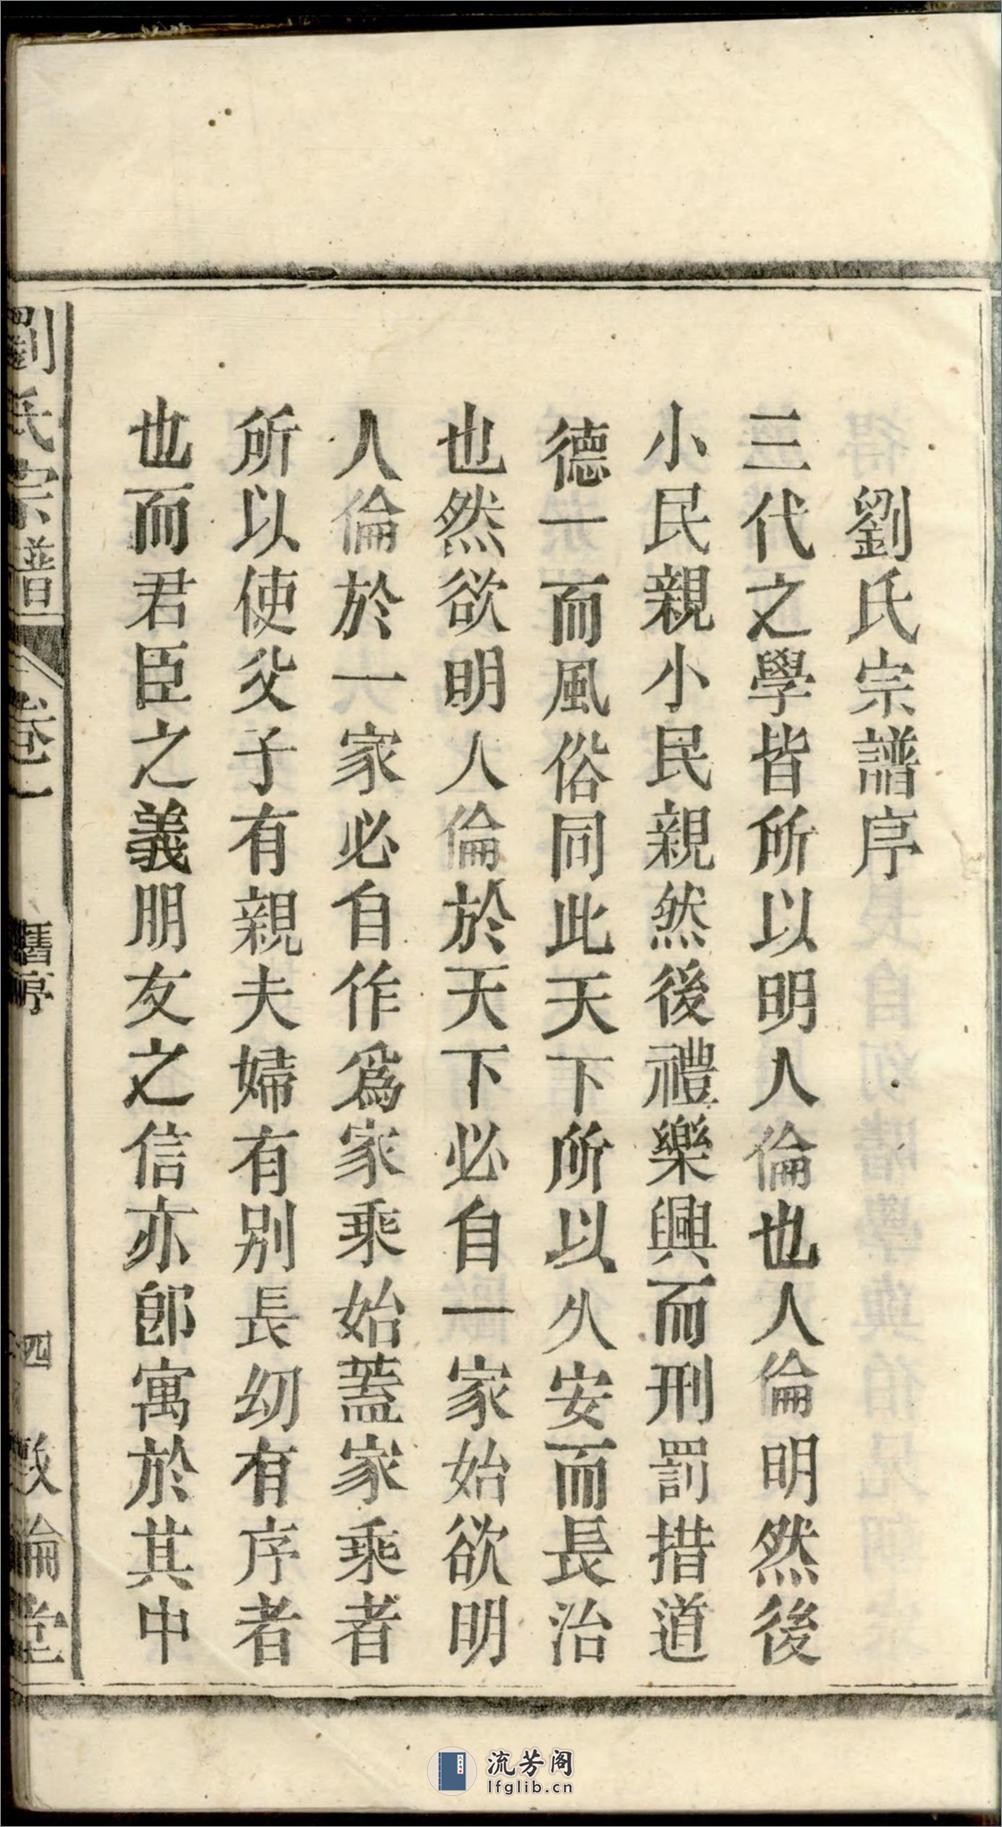 劉氏宗譜序
三代之學皆所以明人倫也人倫明然後
小民親小民親然後禮樂興而刑罰措道
德一而風俗同此天下所以久安而長治
也然欲明人倫於天下必自一家始欲明
人倫於一家必自作爲家乘始蓋家乘者
所以使父子有親夫婦有别長幼有序者
也而君臣之義朋友之信亦卽寓於其中
劉氏宗譜
卷一
舊序
四
敦倫堂
流芳阁
lfglib.cn